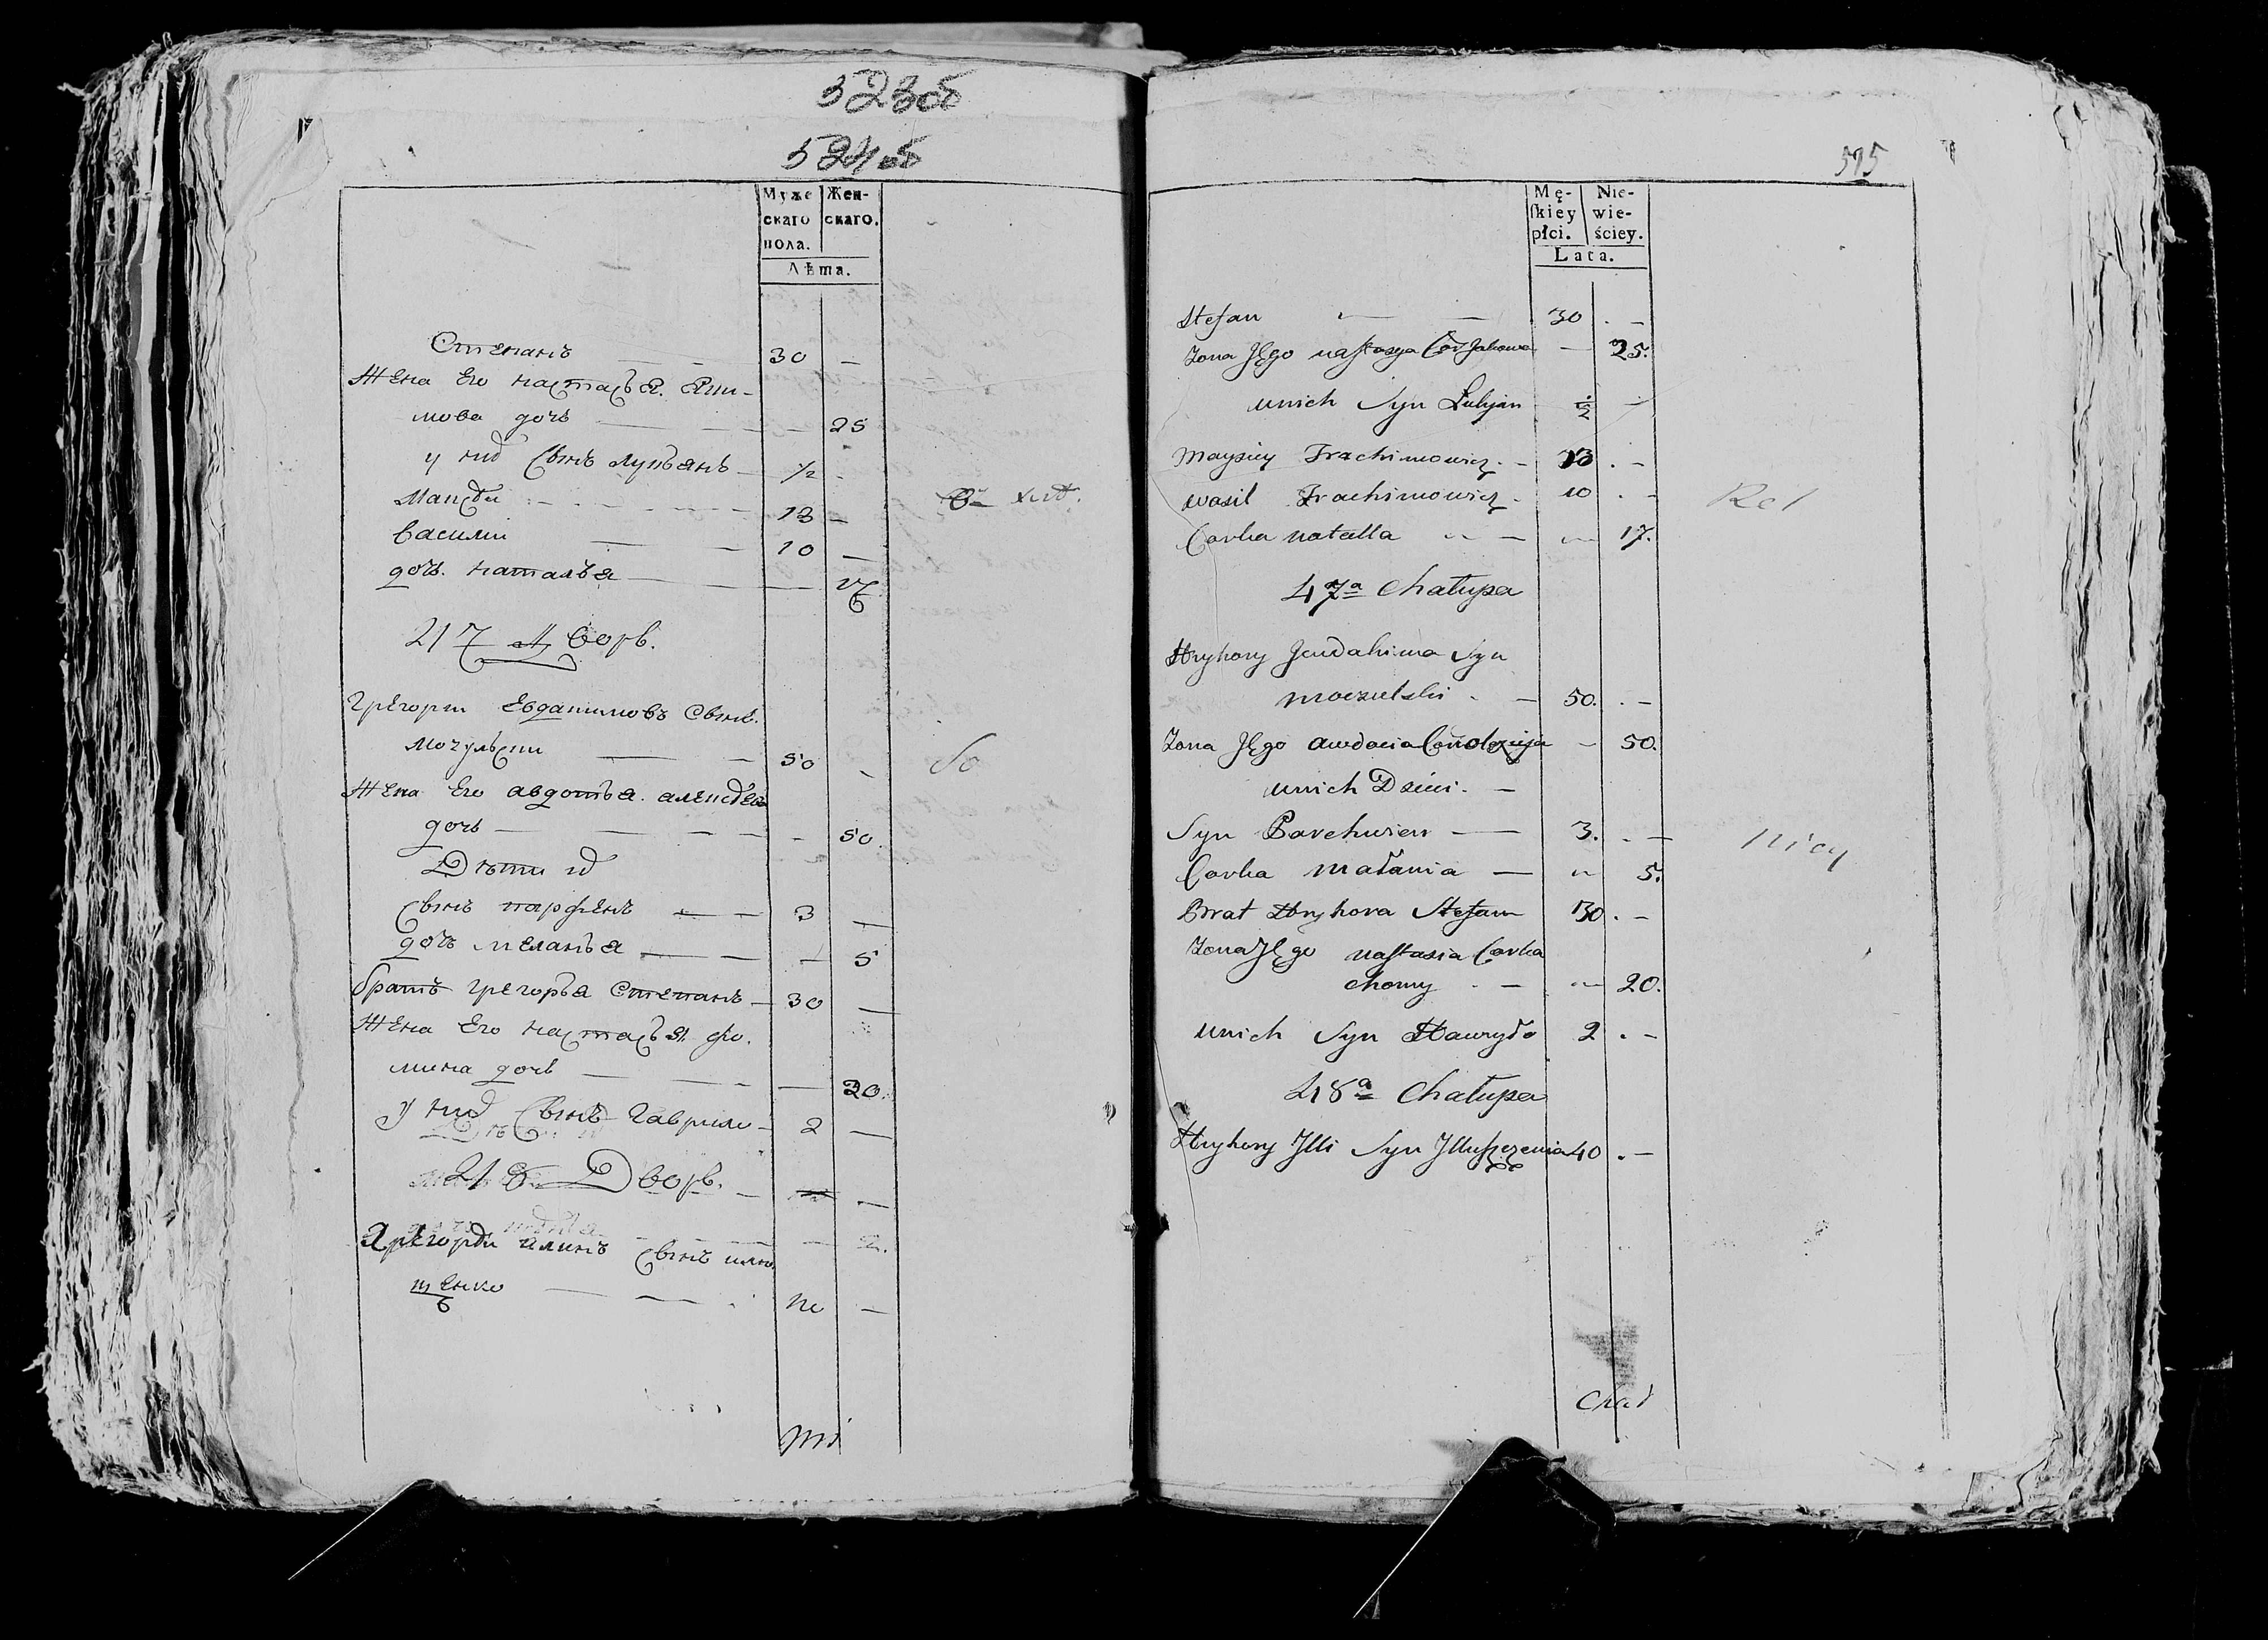 323об
524об
Муже
скаго
пола.
Жен-
скаго.
Лѣта.
Степанъ — — 30 —
Жена Его настасья Яки-
мова дочь — — — 25
у них Сынъ Лукьянъ — 1/2 -
Мапсѣй — — 13 —
Василий — — 10 —
дочь наталья — — 17
217 Дворъ.
Грегори Евдакимовъ Сынъ
Мочульски — — 50 -
Жена Его авдотья
дочь — — — - 50
Дѣти их
Сынъ парфенъ — — 3 —
дочь меланья — — 5
братъ грегорья Степанъ — 30 —
Жена Его настасья фо.
мина дочь — — — 20.
у них Сынъ гаврило - 2 —
218 Дворъ.
Грегорей Сынъ илю.
щенко — — —
525
Mę-
ſkiey
płci.
Nie-
wie-
ściey.
Lata.
Stefan — — 30 . -
Zona Jęgo naſtasya Cor Jakowa — 25.
unich Syn Łukjan 1/2 -
Maysiey Trachimowicz . - 13 . -
wasil Trachimowicz - 10 . -
Corka natalla - — 17.
47a Chałupa
Hryhory Jeudakima Syn
moczulski . - 50. . -
Zona Jęgo awdocia - 50.
unich Dzieci. -
Syn Parchwien — 3. . -
Corka małania — 5.
Brat Hryhora Stefan 30 . -
Zona Jęgo naſtasia Corka
chomy . - — 20.
unich Syn Hawryło 2 . -
48a Chałupa
Hryhory Jlli Syn Jlluſzczenia 40 . -